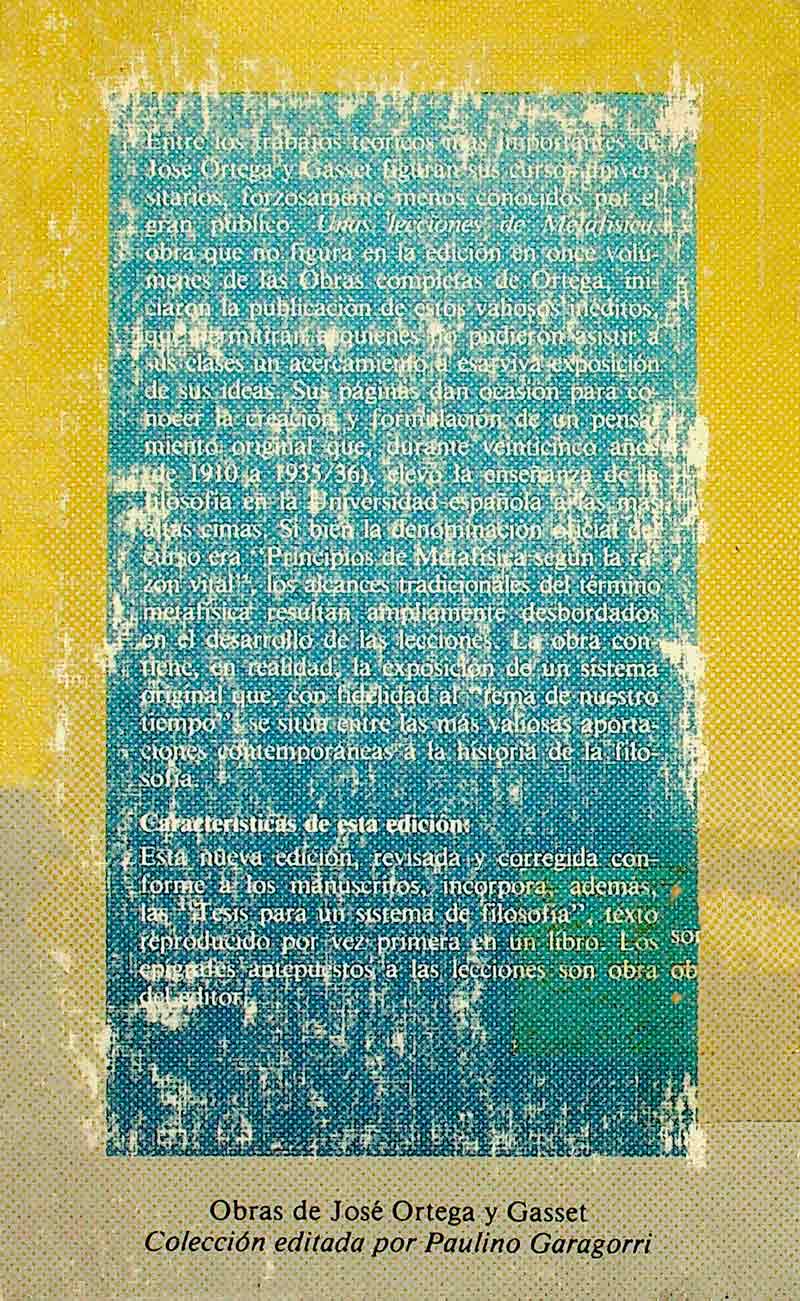 Entre los trabajos teóricos más importantes de
José Ortega y Gasset figuran sus cursos univer-
sitarios, forzosamente menos conocidos por el
gran público. Unas lecciones de Metafísica,
obra que no figura en la edición en once volú-
menes de las Obras completas de Ortega, ini-
ciaron la publicación de estos valiosos inéditos,
que permitirán a quienes no pudieron asistir a
sus clases un acercamiento a esa viva exposición
de sus ideas. Sus páginas dan ocasión para co-
nocer la creación y formulación de un pensa-
miento original que, durante veinticinco años
(de 1910 a 1935/36), elevó la enseñanza de la
filosofía en la Universidad española a las más
altas cimas. Si bien la denominación oficial del
curso era "Principios de Metafísica según la ra-
zón vital", los alcances tradicionales del término
metafísica resultan ampliamente desbordados
en el desarrollo de las lecciones. La obra con-
tiene, en realidad, la exposición de un sistema
original que, con fidelidad al "tema de nuestro
tiempo", se sitúa entre las más valiosas aporta-
ciones contemporáneas a la historia de la filo-
sofía.
Características de esta edición:
Esta nueva edición, revisada y corregida con-
forme a los manuscritos, incorpora, además,
las "Tesis para un sistema de filosofía", texto
reproducido por vez primera en un libro. Los son
epígrafes antepuestos a las lecciones son obra ob
del editor.
Obras de José Ortega y Gasset
Colección editada por Paulino Garagorri